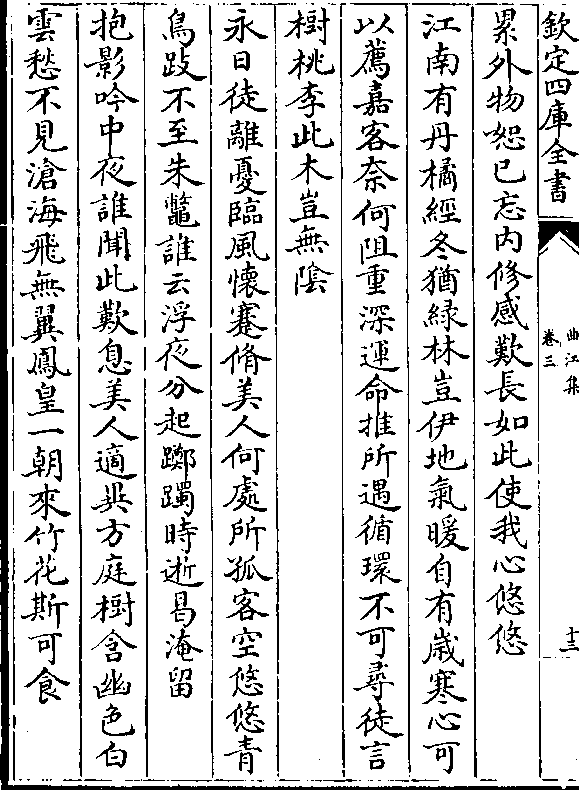 欽定四庫全書
曲江集
卷三
十三
累外物恕已忘内修感歎長如此使我心悠悠
江南有丹橘經冬猶緑林豈伊地氣暖自有歲寒心可
以薦嘉客奈何阻重深運命推所遇循環不可尋徒言
樹桃李此木豈無陰
永日徒離憂臨風懷蹇脩美人何處所孤客空悠悠青
鳥跂不至朱鼈誰云浮夜分起躑躅時逝曷淹留
抱影吟中夜誰聞此歎息美人適異方庭樹含幽色白
雲愁不見滄海飛無翼鳳皇一朝來竹花斯可食